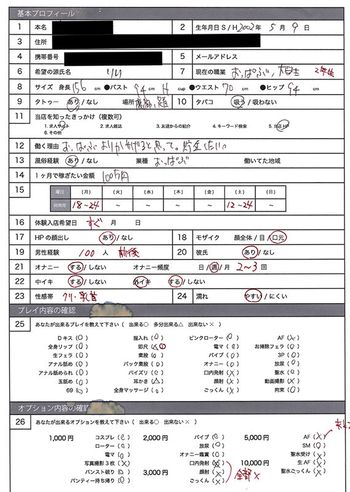 基本プロフィール
1 本名 2 生年月日 S / H 2002年 5月 9日
3 住所
4 携帯番号 5 メールアドレス
6 希望の源氏名 りり 7 現在の職業 おっぱぶ、
8 サイズ 身長 156 cm ◆バスト 94 cm H カップ ◆ウエスト 70 cm ◆ヒップ 94 cm
9 タトゥー あり / なし 場所 10 タバコ 吸う / 吸わない
11 当店を知ったきっかけ (複数可)
1. 求人サイト 2. 求人雑誌 3. 友達からの紹介 4. キーワード検索 5. 当店HP
6. その他
12 働く理由
13 風俗経験 あり / なし 業種 おっぱぶ 働いてた地域
14 1ヶ月で稼ぎたい金額 100万円
15 曜日 (月) (火) (水) (木) (金) (土) (日)
18~24 ~ ~ ~ ~ 12~24 ~
16 体験入店希望日 すぐ 月 日
17 HPの顔出し あり / なし 18 モザイク 顔全体 / 目 / 口元
19 男性経験 100 人 前後 20 彼氏 あり / なし
21 オナニー する / しない オナニー頻度 日 / 週 / 月 2~3 回
22 中イキ する / しない 外イキ する / しない
23 性感帯 クリ・乳首 24 濡れ やすい / にくい
プレイ内容の確認
25 あなたが出来るプレイを教えて下さい ( 出来る○ 多分出来る△ 出来ない× )
Dキス 指入れ ピンクローター AF
全身リップ 即尺 電マ お掃除フェラ
生フェラ 素股 バイブ 3P
アナル舐め バック素股 オナニー 放尿
アナル舐められ パイズリ 口内発射 聖水
玉舐め 耳かき 顔射 動画撮影
69 全身マッサージ ごっくん 拘束
オプション内容の確認
26 あなたが出来るオプションを教えて下さい ( 出来る○ 出来ない× )
1,000円 コスプレ 2,000円 バイブ 5,000円 AF
ローター 放尿 SM
電マ オナニー鑑賞 聖水受け
写真撮影3枚 口内発射 10,000円 生AF
パンスト破り 3,000円 顔射 全部× 聖水ごっくん
パンティー持ち帰り ごっくん